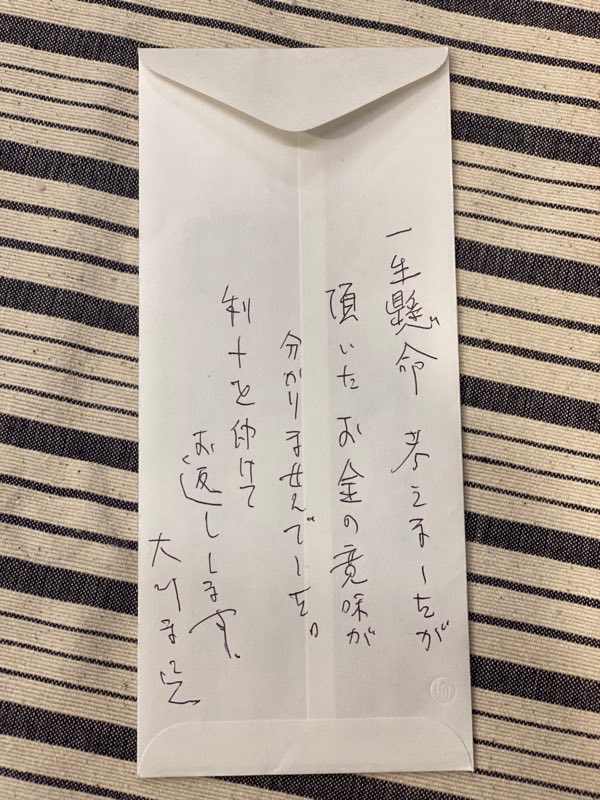 一生懸命 考えましたが
頂いた お金の意味が
分かりませんでした。
利十を付けて
お返しします。